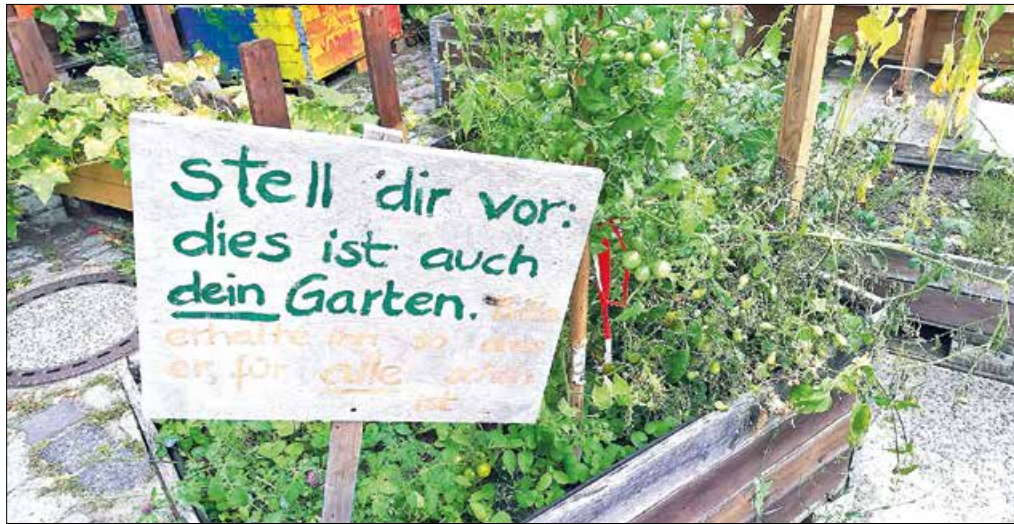 stell dir vor:
dies ist auch
dein Garten. Bitte
erhalte ihn so dass
er für alle schön
ist